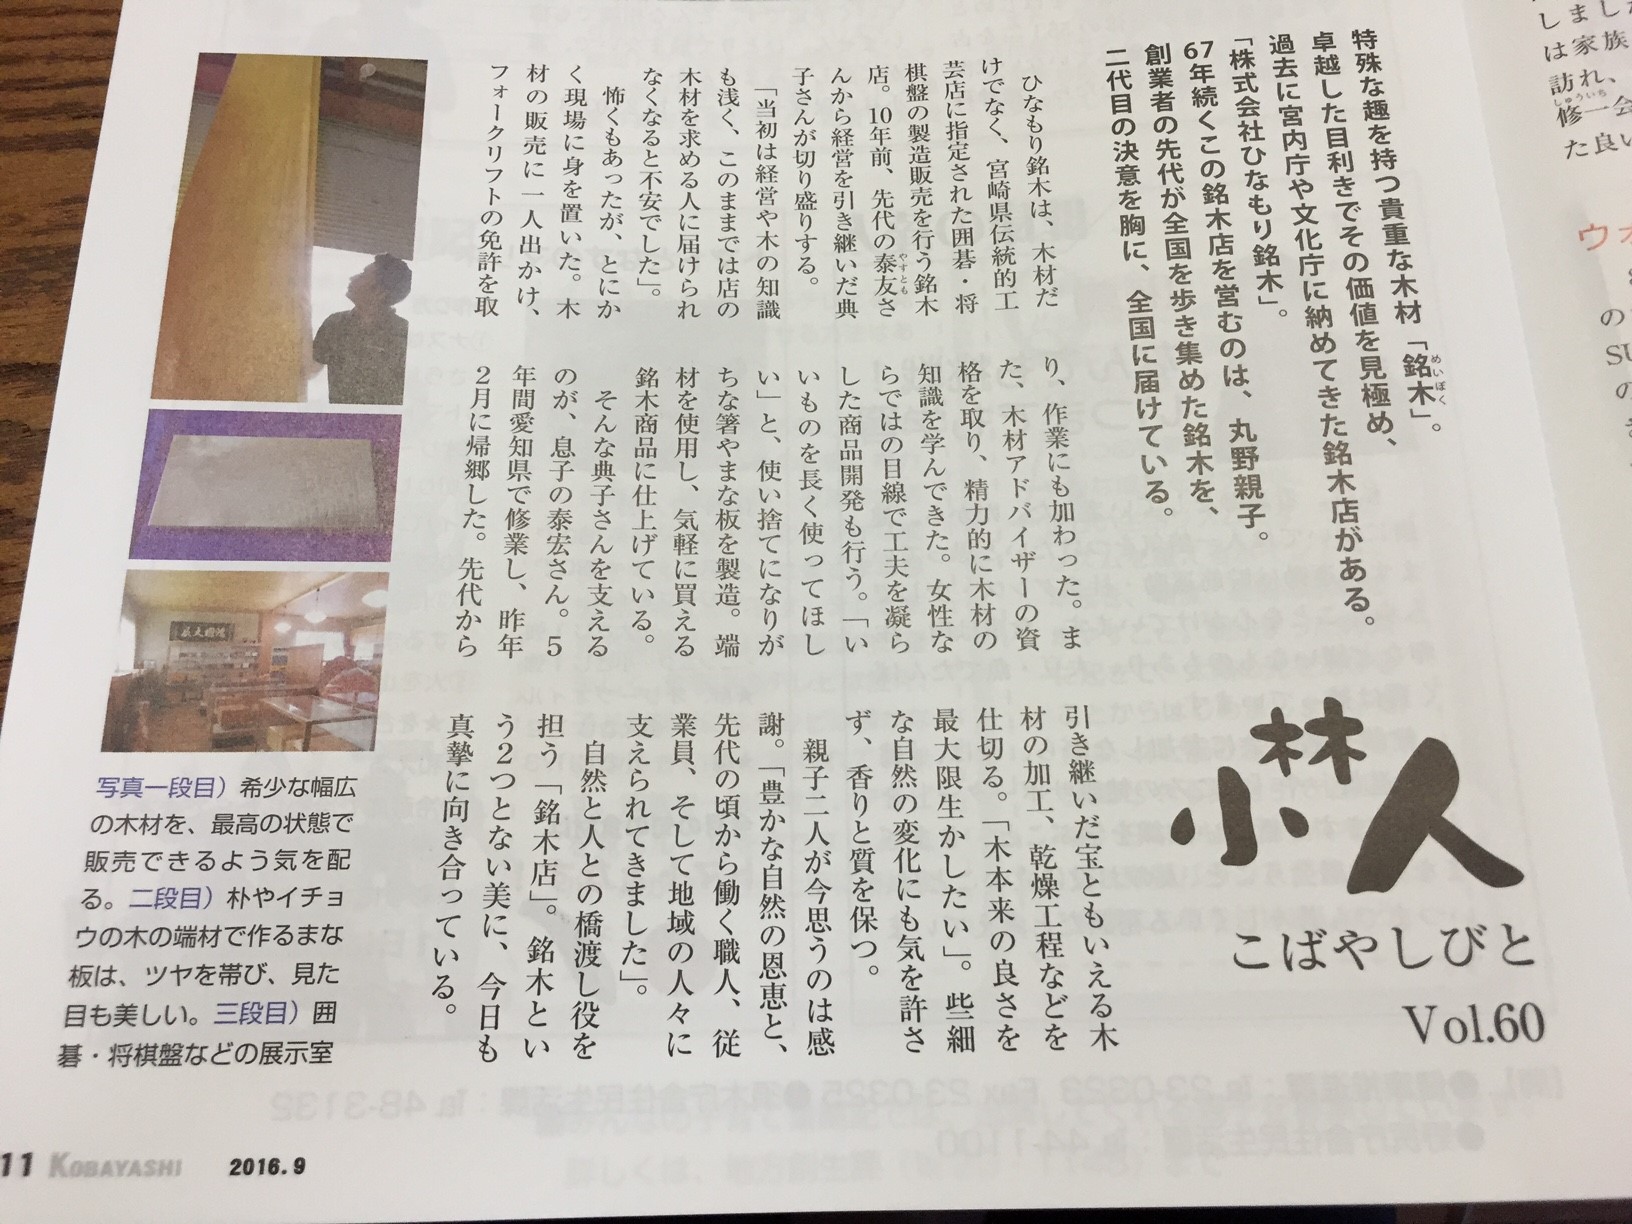 特殊な趣を持つ貴重な木材「銘木」。
めいぼく
卓越した目利きでその価値を見極め、
過去に宮内庁や文化庁に納めてきた銘木店がある。
「株式会社ひなもり銘木」。
67年続くこの銘木店を営むのは、丸野親子。
創業者の先代が全国を歩き集めた銘木を、
二代目の決意を胸に、全国に届けている。
小林人
こばやしびと
Vol.60
ひなもり銘木は、木材だ
けでなく、宮崎県伝統的工
芸店に指定された囲碁・将
棋盤の製造販売を行う銘木
店。10年前、先代の泰友さ
やすとも
んから経営を引き継いだ典
子さんが切り盛りする。
「当初は経営や木の知識
も浅く、このままでは店の
木材を求める人に届けられ
なくなると不安でした」。
怖くもあったが、とにか
く現場に身を置いた。木
材の販売に一人出かけ、
フォークリフトの免許を取
り、作業にも加わった。ま
た、木材アドバイザーの資
格を取り、精力的に木材の
知識を学んできた。女性な
らではの目線で工夫を凝ら
した商品開発も行う。「い
いものを長く使ってほし
い」と、使い捨てになりが
ちな箸やまな板を製造。端
材を使用し、気軽に買える
銘木商品に仕上げている。
そんな典子さんを支える
のが、息子の泰宏さん。5
年間愛知県で修業し、昨年
2月に帰郷した。先代から
引き継いだ宝ともいえる木
材の加工、乾燥工程などを
仕切る。「木本来の良さを
最大限生かしたい」。些細
な自然の変化にも気を許さ
ず、香りと質を保つ。
親子二人が今思うのは感
謝。「豊かな自然の恩恵と、
先代の頃から働く職人、従
業員、そして地域の人々に
支えられてきました」。
自然と人との橋渡し役を
担う「銘木店」。銘木とい
う2つとない美に、今日も
真摯に向き合っている。
写真一段目）希少な幅広
の木材を、最高の状態で
販売できるよう気を配
る。二段目）朴やイチョ
ウの木の端材で作るまな
板は、ツヤを帯び、見た
目も美しい。三段目）囲
碁・将棋盤などの展示室
11 KOBAYASHI 2016.9